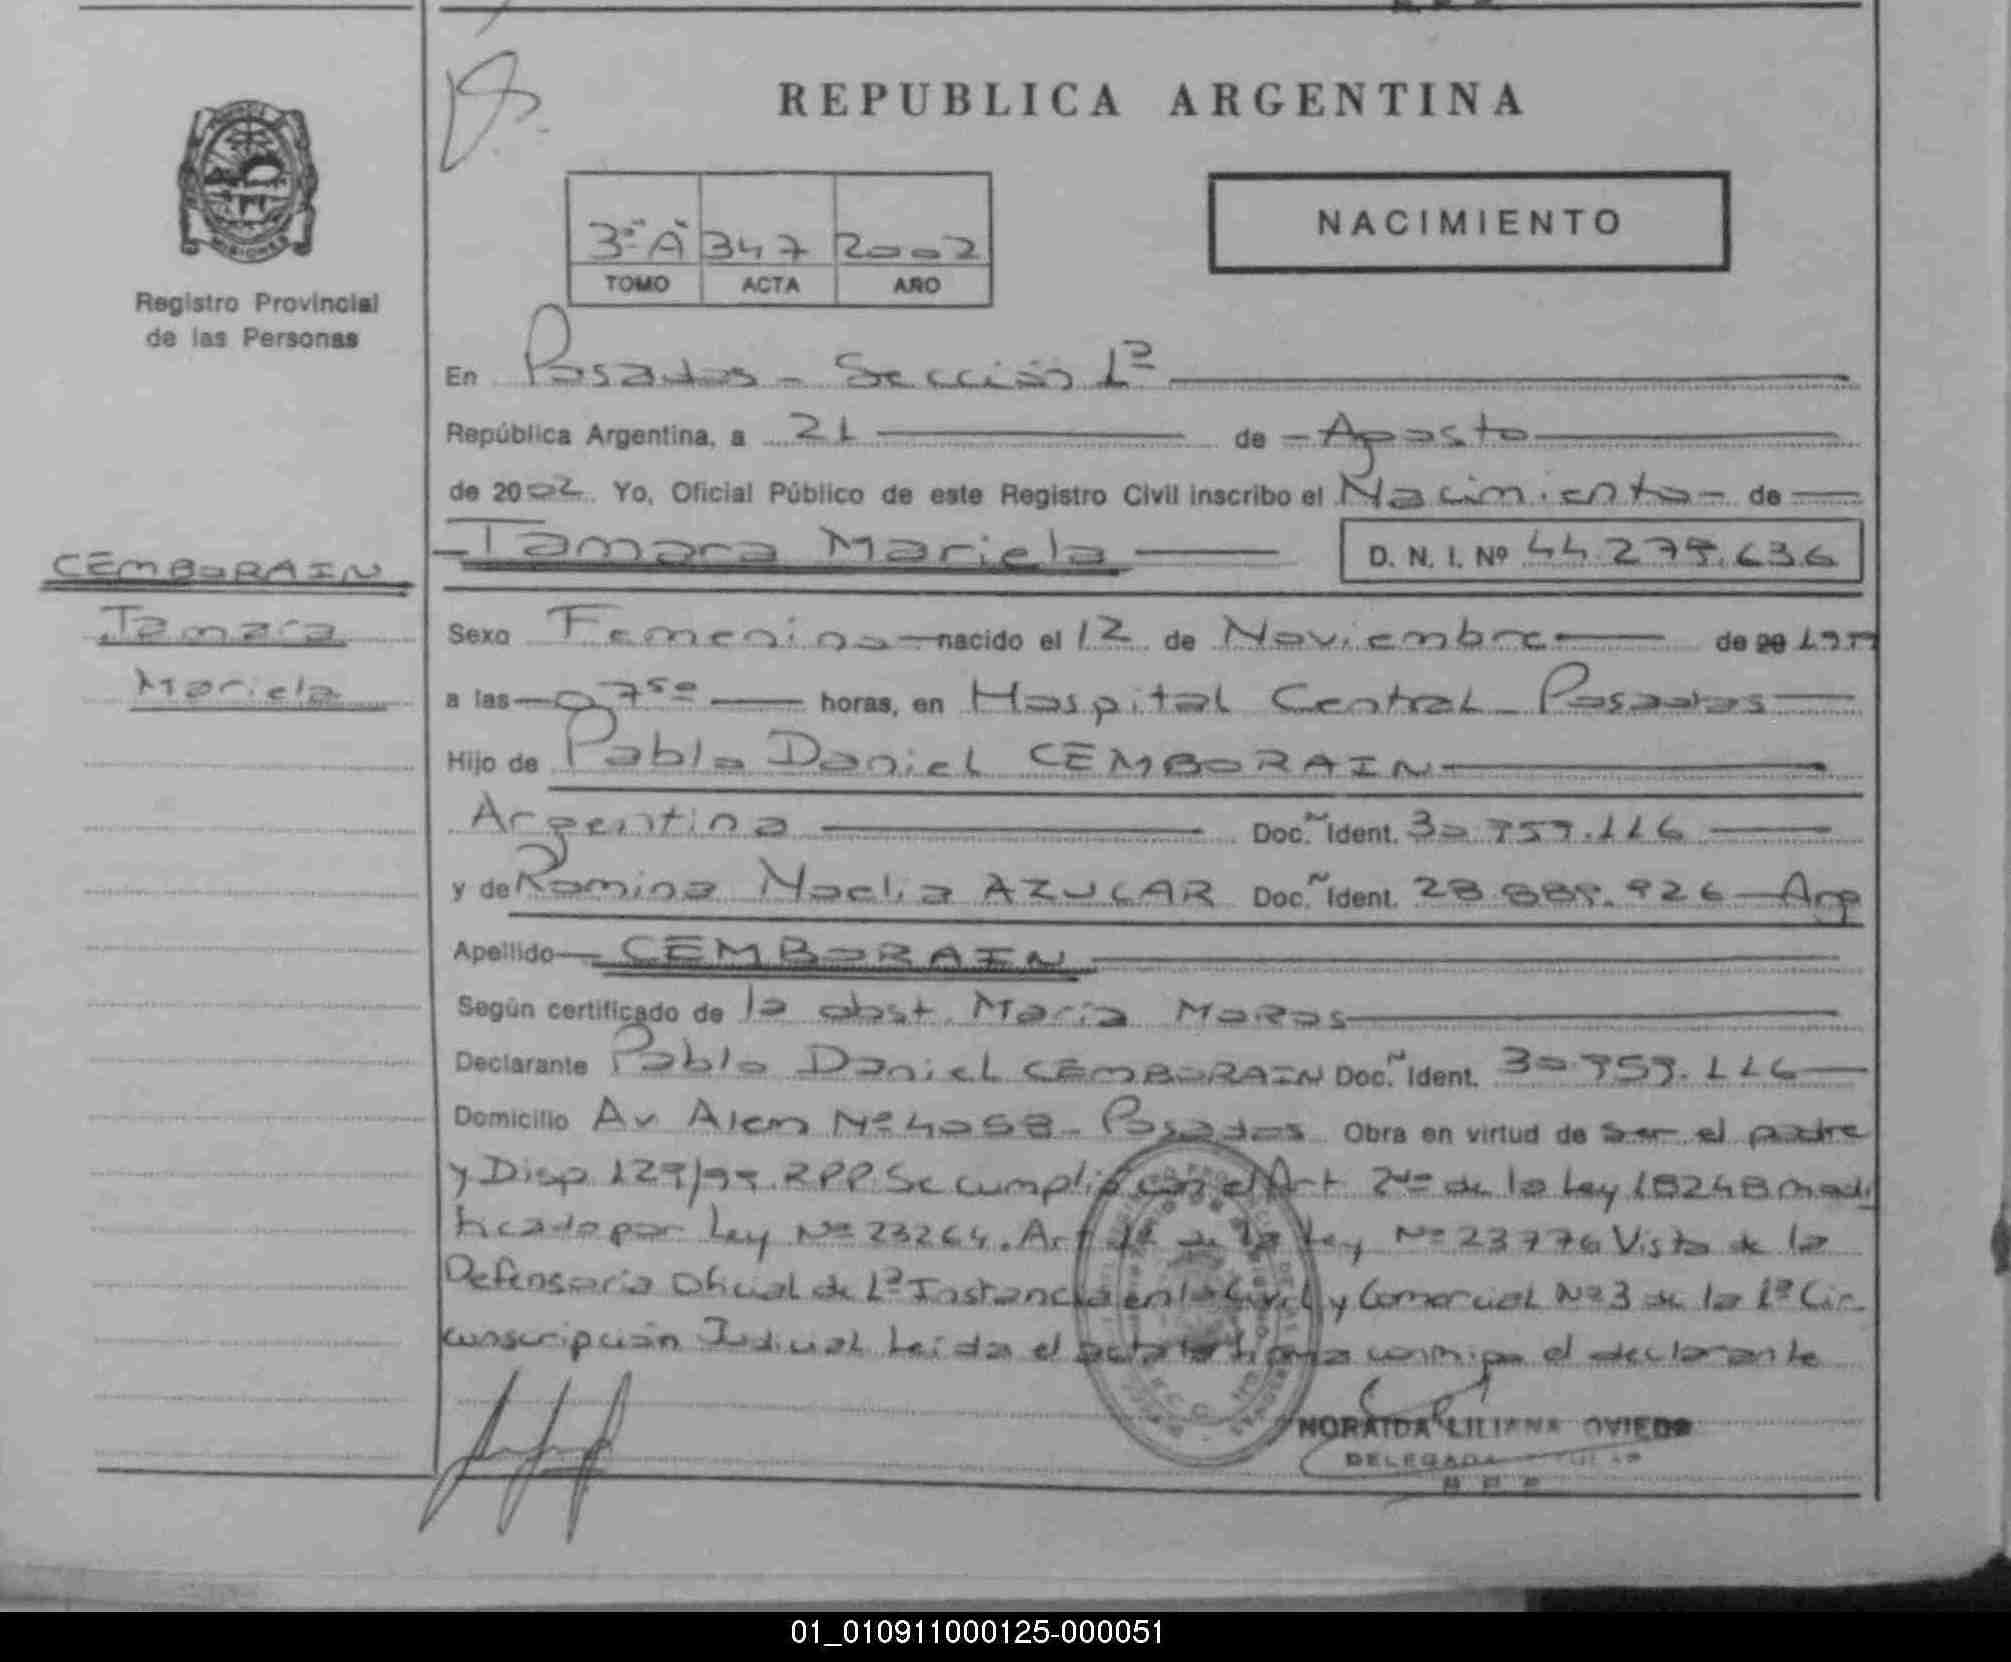 REPUBLICA ARGENTINA
MISIONES
Registro Provincial
de las Personas
3º "A" 347 2002
TOMO ACTA AÑO
NACIMIENTO
En Posadas - Sección 1ª
República Argentina, a 21 de Agosto
de 2002 Yo, Oficial Público de este Registro Civil inscribo el Nacimiento de
Tamara Mariela D. N. I. Nº 44.279.636
CEMBORAIN
Tamara
Mariela
Sexo Femenino nacido el 12 de Noviembre de 20
a las 07⁵⁰ horas, en Hospital Central - Posadas
Hijo de Pablo Daniel CEMBORAIN
Argentina Doc. Ident. 30.959.116
y de Romina Noelia AZUCAR Doc. Ident. 28.889.926 - Arg
Apellido CEMBORAIN
Según certificado de la obst. Maria
Declarante Pablo Daniel CEMBORAIN Doc. Ident. 30.959.116
Domicilio Av Alem Nº 4058 - Posadas Obra en virtud de ser el padre
y Disp. 129/99. RPP. Se cumplió con el Art 2do de la Ley 18248 modi
ficado por Ley Nº 23264. Art 1º de la Ley Nº 23776 Vista de la
Defensoría Oficial de 1ª Instancia en lo Civil y Comercial Nº 3 de la 1ª Cir
cunscripción Judicial Leída el acta la firma conmigo el declarante
NORAIDA LILIANA OVIEDO
DELEGADA TITULAR
01_010911000125-000051